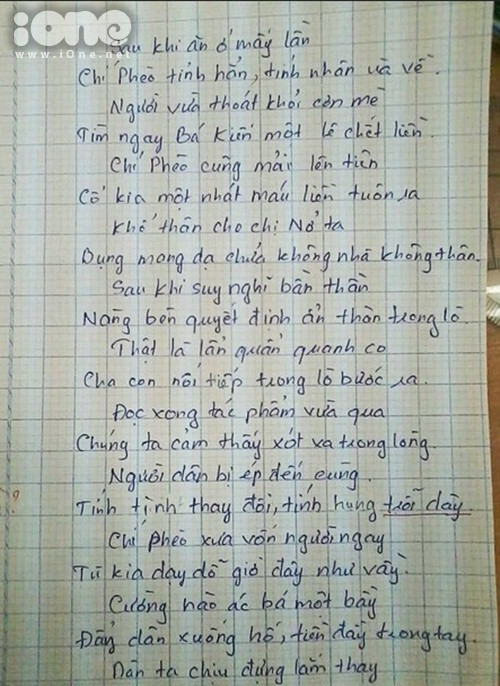 ione
www.iOne.net
Sau khi ăn ở mấy lần
Chí Phèo tỉnh hẳn, tính nhân và về.
Người vừa thoát khỏi cơn mê
Tìm ngay Bá Kiến một lê chết liền.
Chí Phèo cũng mải lên tiên
Cổ kia một nhát máu liền tuôn ra
Khổ thân cho chị Nở ta
Bụng mang dạ chửa không nhà không thân.
Sau khi suy nghĩ bần thần
Nàng bèn quyết định ẩn thân trong lò
Thật là lẩn quẩn quanh co
Cha con nối tiếp trong lò bước ra.
Đọc xong tác phẩm vừa qua
Chúng ta cảm thấy xót xa trong lòng.
Người dân bị ép đến cùng.
Tính tình thay đổi, tính hung trỗi dậy.
Chí Phèo xưa vốn người ngay
Tù kia dạy dỗ giờ đây như vầy.
Cường hào ác bá một bầy
Đẩy dân xuống hố, tiền đầy trong tay.
Dân ta chịu đựng lắm thay